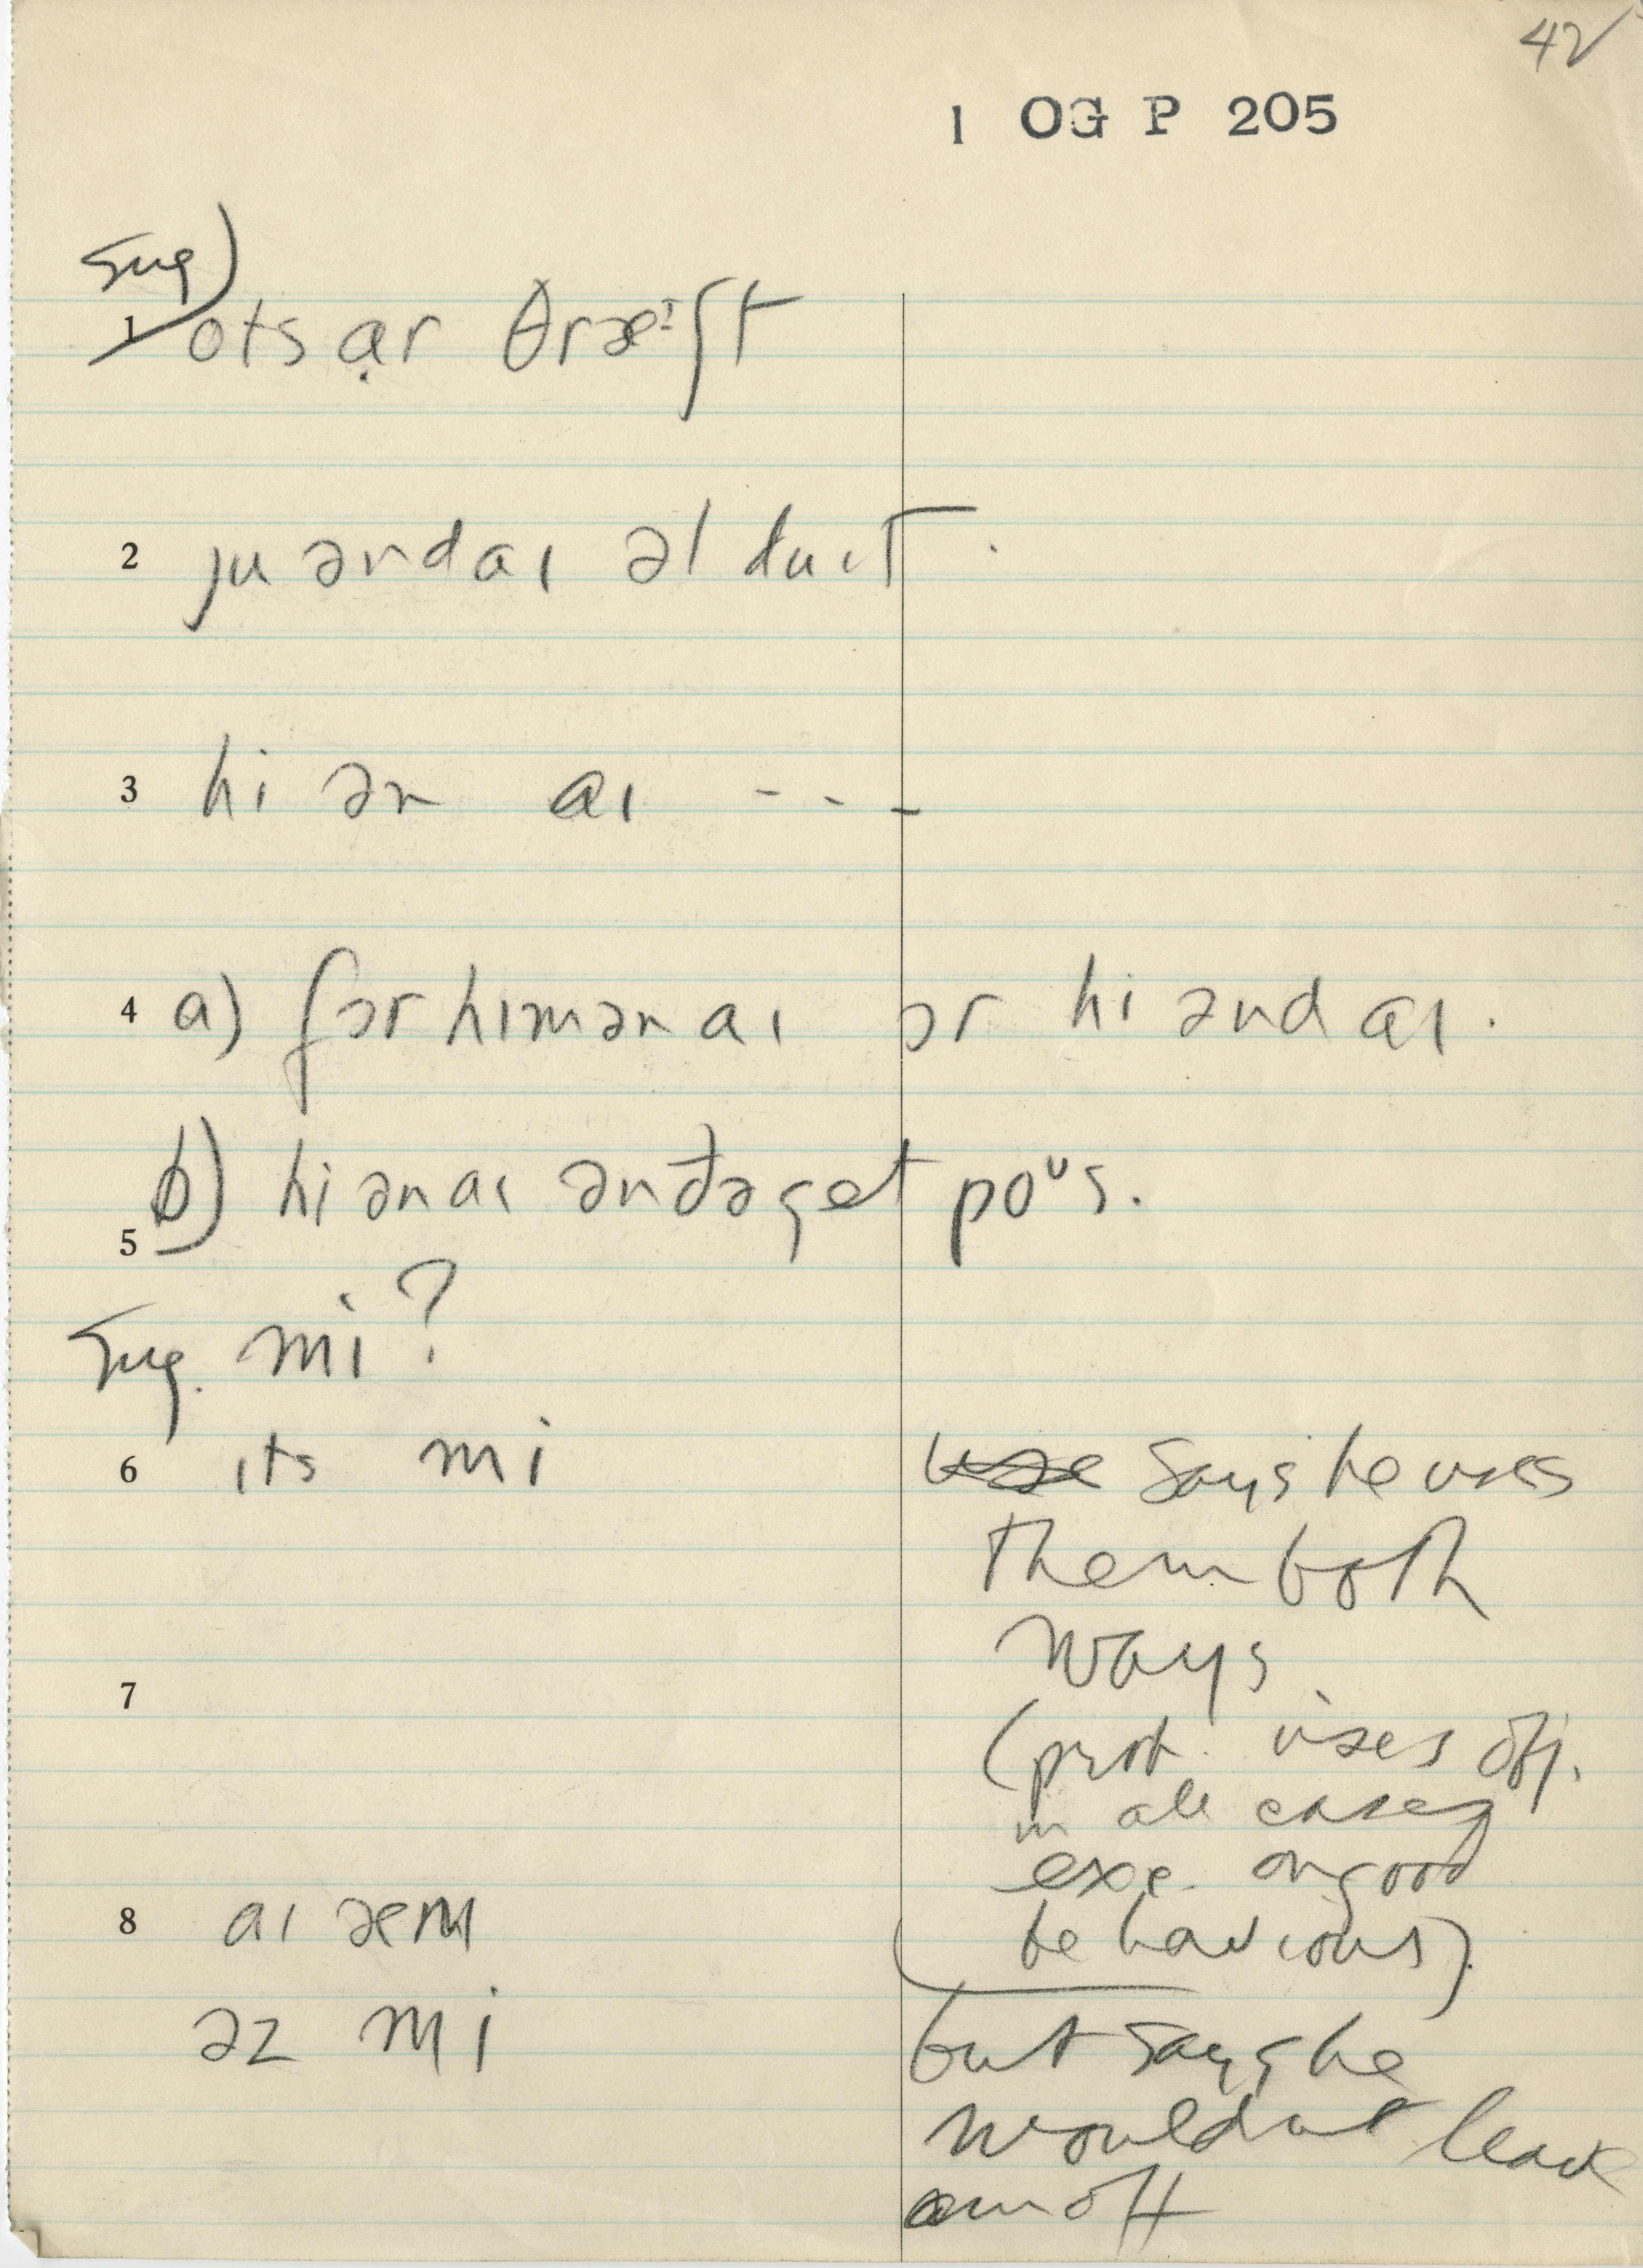 42
1 OG P 205
Sug)
1 ots ɑr θræᶦʃt
2 ju ənd aɪ əl du ɪt.
3 hi ən aɪ - - -
4 a) fɔr hɪm ən aɪ ɔr hi ənd aɪ.
b) hi ən aɪ ən ðə get poᵘs.
5
Sug. mi?
6 ɪts mi
use says he uses
them both
ways
7
(prob. uses obj.
in all cases
exc. on good
8 aɪ æm
behaviour).
əz mi
but says he
would not leave
am off